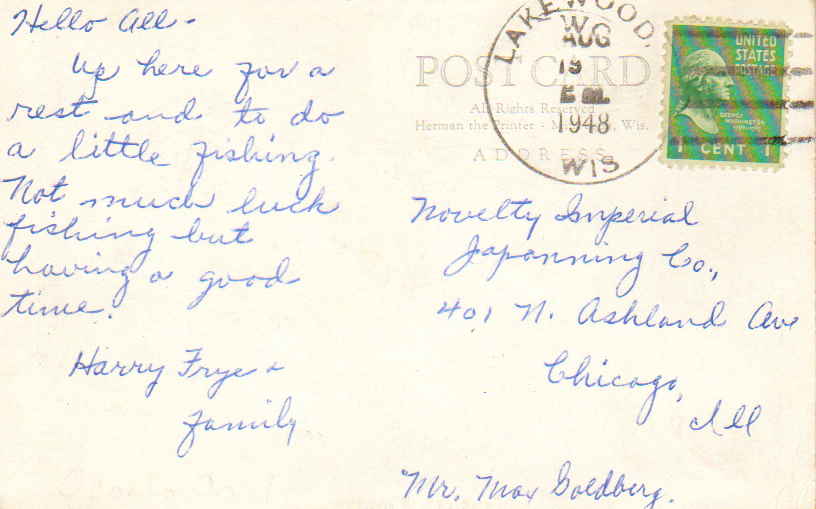 Hello All -
Up here for a
rest and to do
a little fishing.
Not much luck
fishing but
having a good
time.
Harry Frye &
family
LAKEWOOD,
AUG
19
1948
WIS
UNITED
STATES
POSTAGE
GEORGE
WASHINGTON
1 CENT 1
POST CARD
All Rights Reserved
Herman the Printer - Wis.
ADDRESS
Novelty Imperial
Japanning Co.,
401 N. Ashland Ave
Chicago,
Ill
"Mr. Max Goldberg.